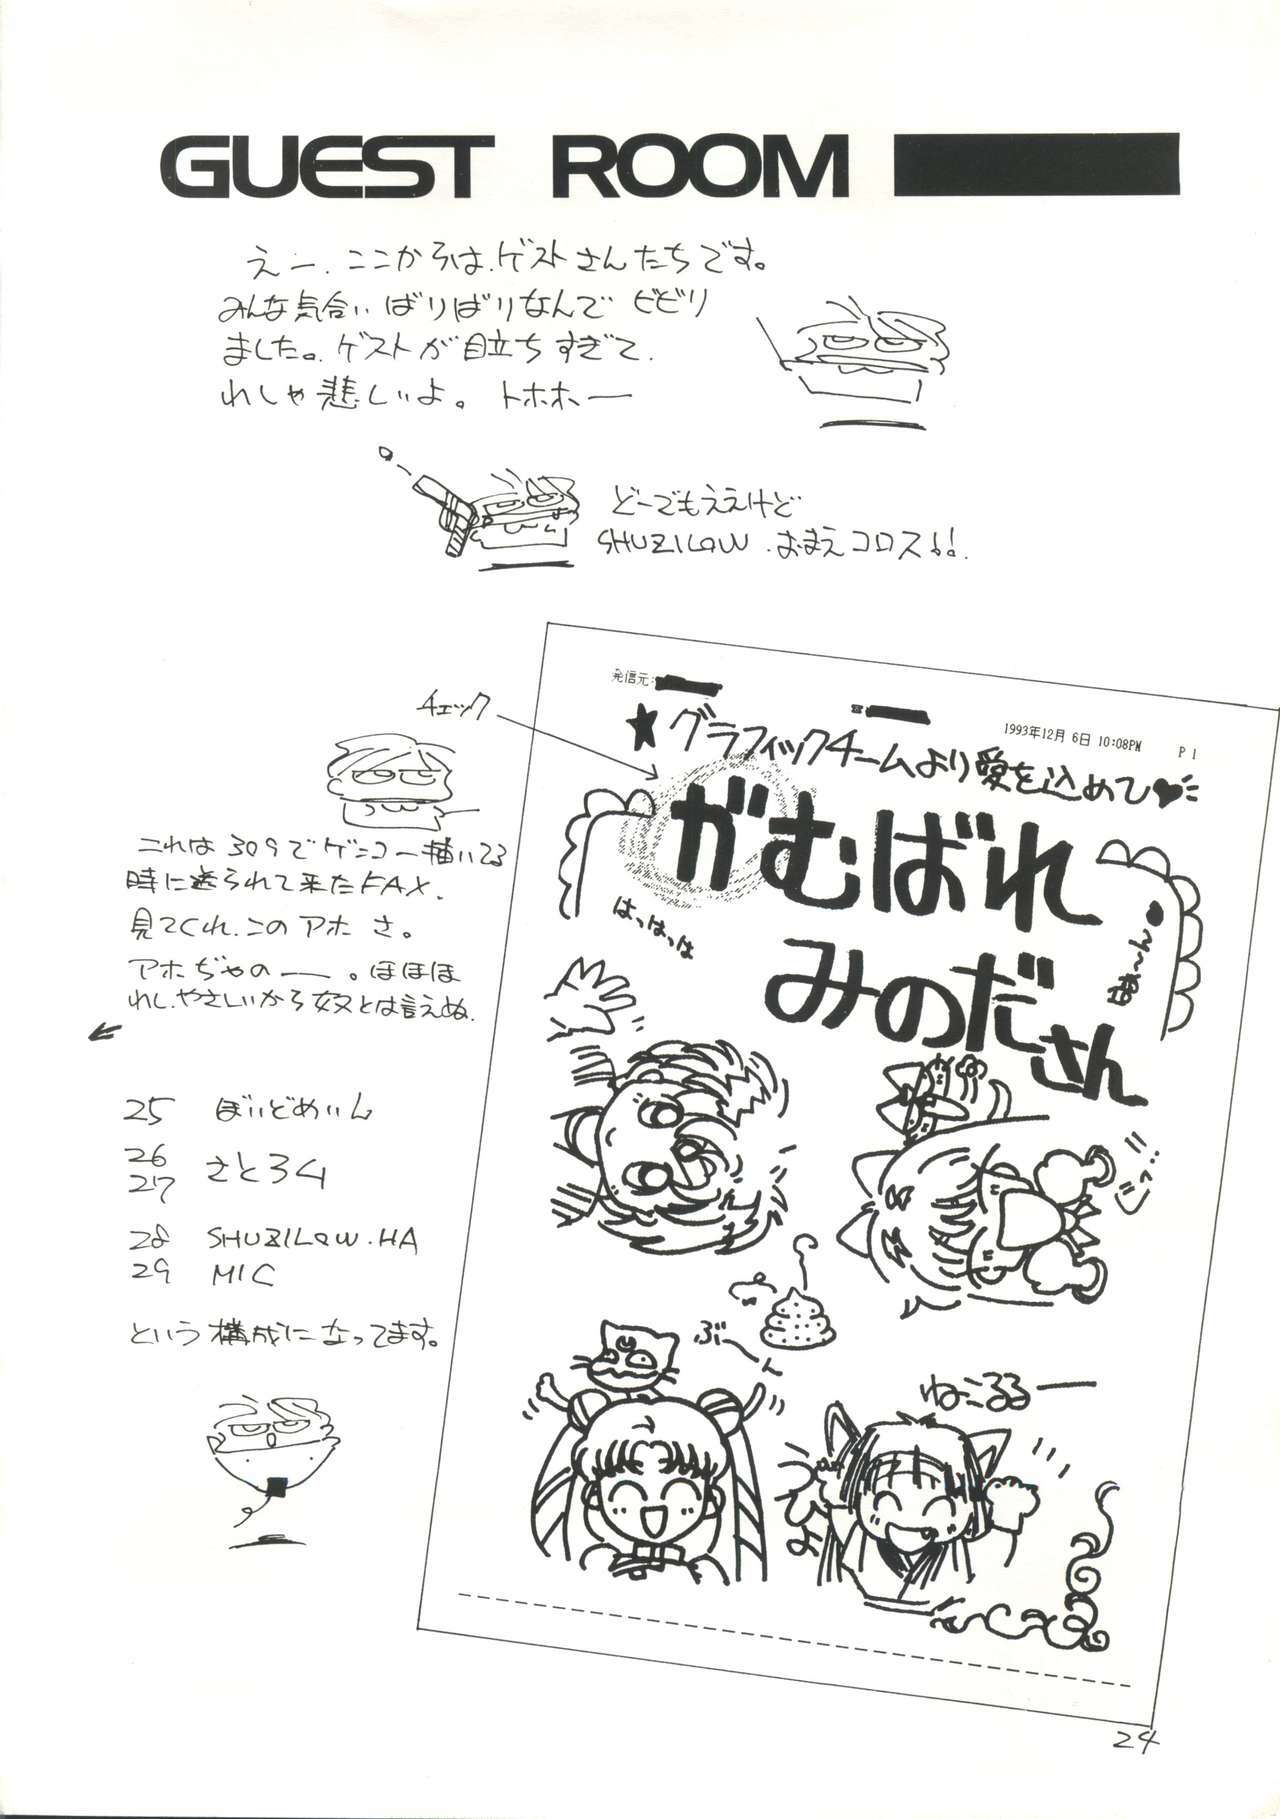 GUEST ROOM
えー、ここからは、ゲストさんたちです。
みんな気合いばりばりなんでビビリ
ました。ゲストが目立ちすぎて、
れしゃ悲しいよ。トホホー
どーでもええけど
SHUZILOW.おまえコロス!!
チェック
発信元:
1993年12月 6日 10:08PM P 1
★グラフィックチームより愛を込めて♥
がむばれ
みのださん
はっはっは
あは〜ん♥
これは309でゲンコー描いてる
時に送られて来たFAX.
見てくれ、このアホさ。
アホぢゃのー。ほほほ
れし、やさしいから奴とは言えぬ.
25 ぼいどめいん
26
27 さとろ4
28 SHUZILOW.HA
29 MIC
という構成になってます。
ぶーん
ねこるるー
よ
24